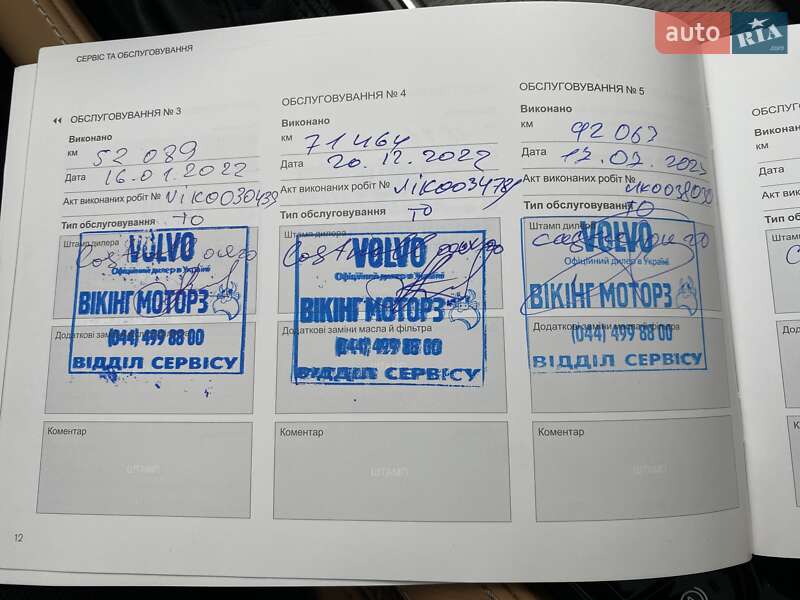 auto RIA
СЕРВІС ТА ОБСЛУГОВУВАННЯ
ОБСЛУГОВУВАННЯ № 3
Виконано
км 52 089
Дата 16.01.2022
Акт виконаних робіт № VIK0030439
Тип обслуговування ТО
Штамп дилера
VOLVO
Офіційний дилер в Україні
ВІКІНГ МОТОРЗ
(044) 499 88 00
ВІДДІЛ СЕРВІСУ
Коментар
ШТАМП
ОБСЛУГОВУВАННЯ № 4
Виконано
км 71 464
Дата 20.12.2022
Акт виконаних робіт №
Тип обслуговування ТО
Штамп дилера
VOLVO
Офіційний дилер в Україні
ВІКІНГ МОТОРЗ
Додаткові заміни масла й фільтра
(044) 499 88 00
ВІДДІЛ СЕРВІСУ
Коментар
ШТАМП
ОБСЛУГОВУВАННЯ № 5
Виконано
км 92 063
Дата
Акт виконаних робіт №
Тип обслуговування ТО
Штамп дилера
VOLVO
Офіційний дилер в Україні
ВІКІНГ МОТОРЗ
Додаткові заміни масла й фільтра
(044) 499 88 00
ВІДДІЛ СЕРВІСУ
Коментар
ШТАМП
км
Дата
12